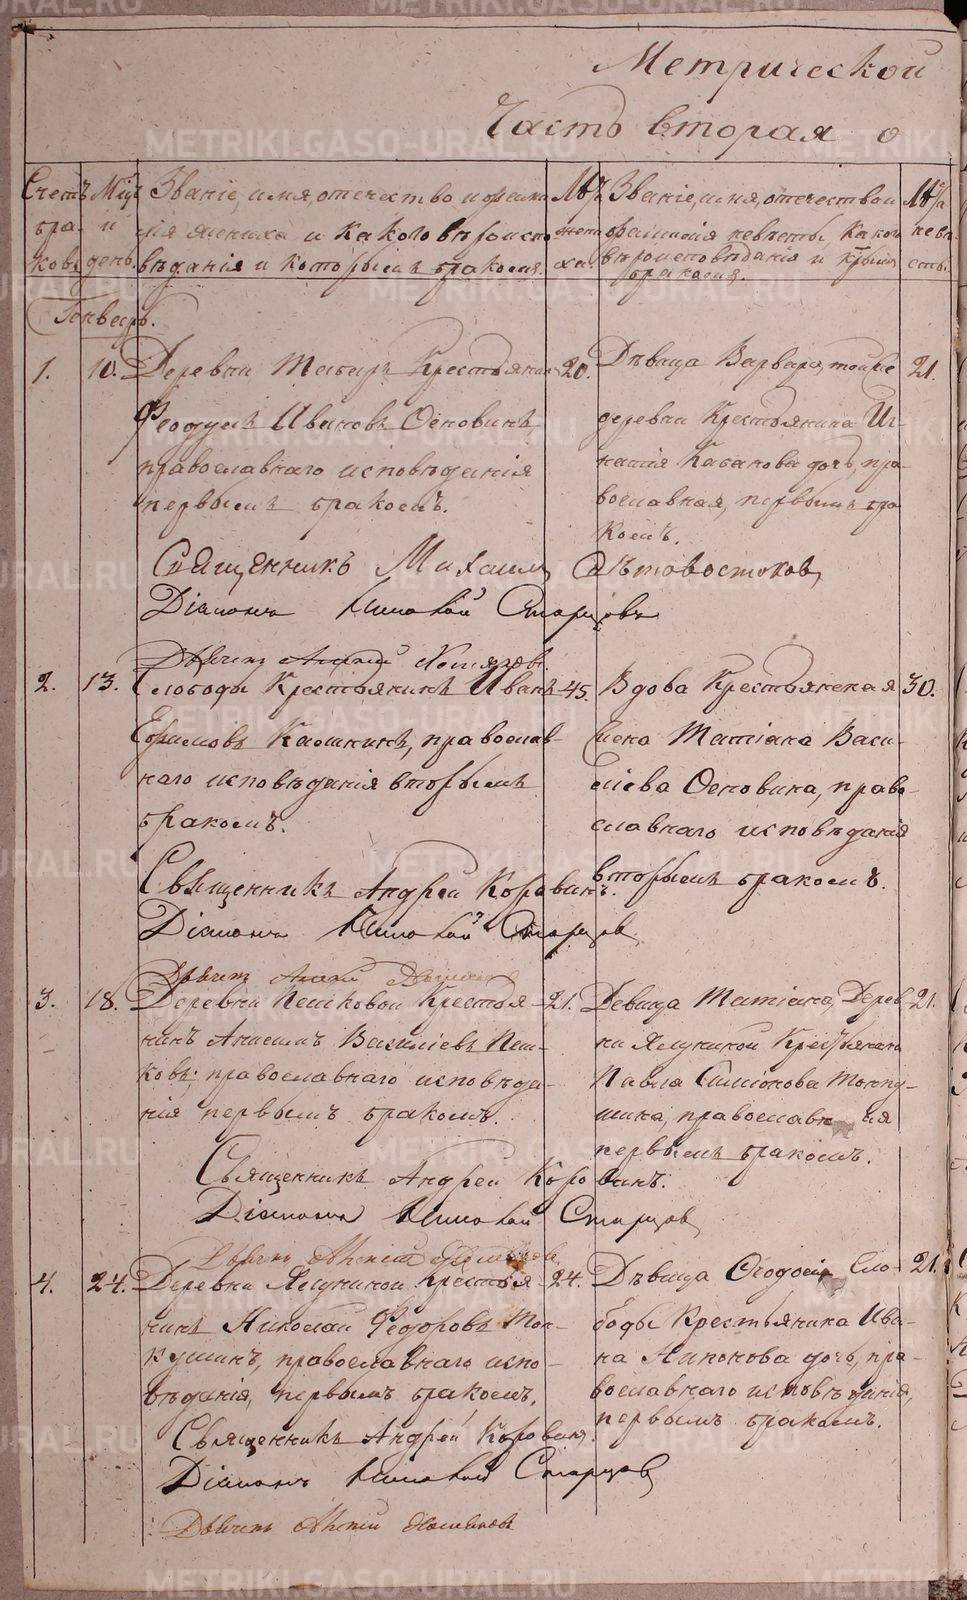 Метрической
Часть вторая о
Счетъ бра- ковъ
Мцъ и день.
Званіе, имя, отечество и фами-
лія жениха и какого вѣроиспо-
вѣданія и которымъ бракомъ.
Лѣта жени- ха.
Званіе, имя, отечество и
фамилія невѣсты, какого
вѣроисповѣданія и которымъ
бракомъ.
Лѣта неве- сты.
Генварь.
1. 10.
Деревни Крестьянинъ
Феодулъ Ивановъ Основинъ
православнаго исповѣданія
первымъ бракомъ.
20.
Дѣвица Варвара, той же
деревни Крестьянина Иг-
натія Кабакова дочь, пра-
вославная, первымъ бра
комъ.
21.
Священникъ Михаилъ
Діаконъ Старцовъ
Дьячекъ
2. 13.
Слободы Крестьянинъ Иванъ
Ефимовъ православ-
наго исповѣданія вторымъ
бракомъ.
45.
Вдова Крестьянская
жена Татіана Васи-
лієва Основина, право-
славнаго исповѣданія
вторымъ бракомъ.
30.
Священникъ Андрей Коровинъ.
Діаконъ Старцов
Дьячекъ
3. 18.
Деревни Пешковой Крестья-
нинъ Анисимъ Василіевъ Пеш-
ковъ, православнаго исповѣда-
нія первымъ бракомъ.
21.
Девица Татіана, Дерев-
ни Ялуниной Крестьянина
Павла Симіонова Токпу-
шина,
первымъ бракомъ.
21.
Священникъ Андрей Коровинъ.
Діаконъ Старцов
Дьячекъ
4. 24.
Деревни Ялуниной Крестья
нинъ Николай Федоровъ
православнаго испо-
вѣданія, первымъ бракомъ.
24.
Дѣвица Феодосія Сло-
боды Крестьянина Ива-
на дочь, пра-
вославнаго исповѣданія,
первымъ бракомъ.
21.
Священникъ Андрей Коровинъ
Діаконъ Старцов
Дьячекъ
METRIKI.GASO-URAL.RU